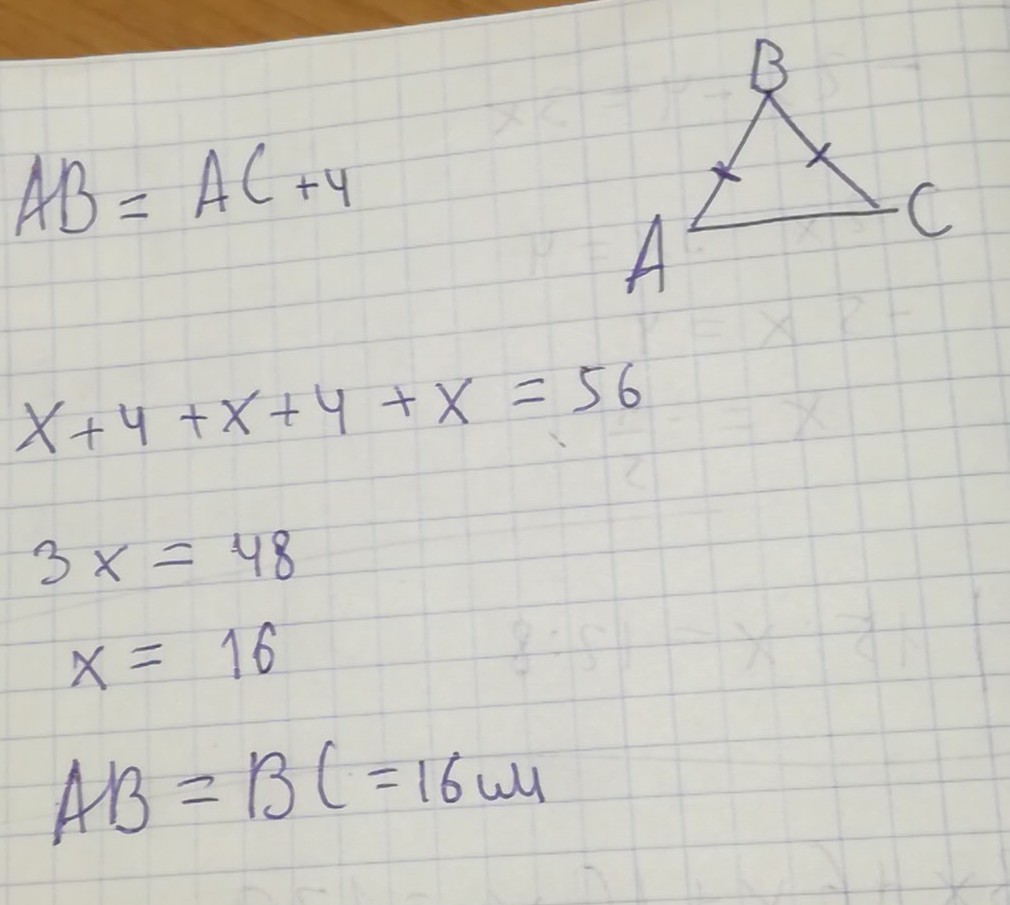 B
AB = AC + 4
A
C
x + 4 + x + 4 + x = 56
3x = 48
x = 16
AB = BC = 16 см